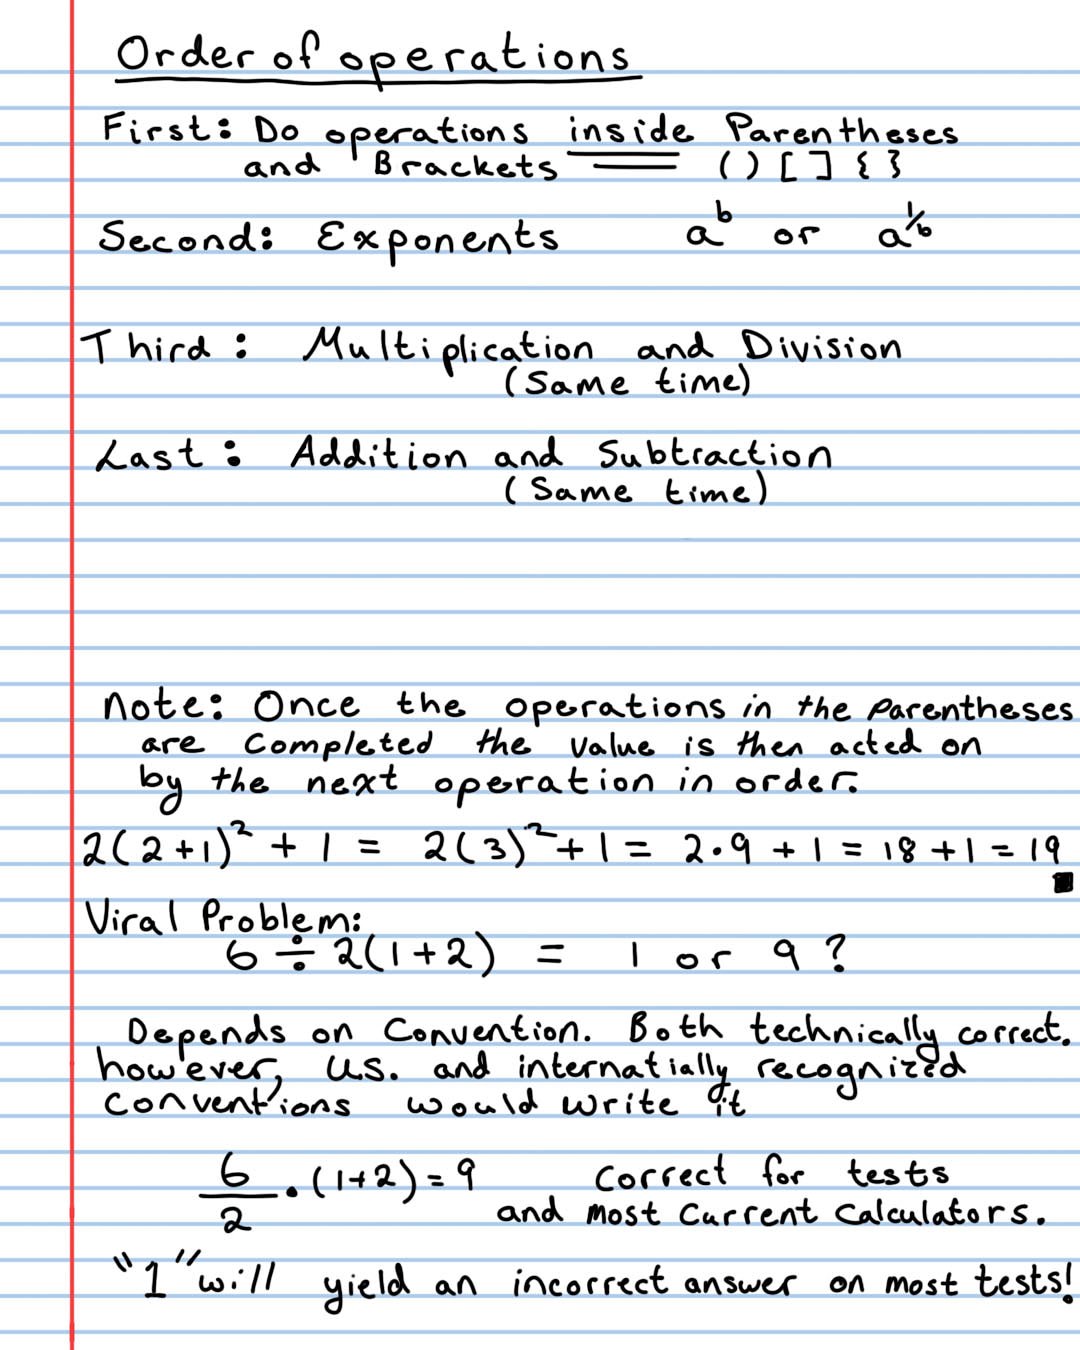 Order of operations
First: Do operations inside Parentheses
and Brackets ( ) [ ] { }
Second: Exponents a^b or a^1/b
Third: Multiplication and Division
(Same time)
Last: Addition and Subtraction
(Same time)
note: Once the operations in the Parentheses
are completed the value is then acted on
by the next operation in order.
2(2+1)² + 1 = 2(3)² + 1 = 2·9 + 1 = 18 + 1 = 19
Viral Problem:
6 ÷ 2(1+2) = 1 or 9 ?
Depends on Convention. Both technically correct.
however, U.S. and internatially recognized
conventions would write it
6/2 · (1+2) = 9 Correct for tests
and most current calculators.
"1" will yield an incorrect answer on most tests!